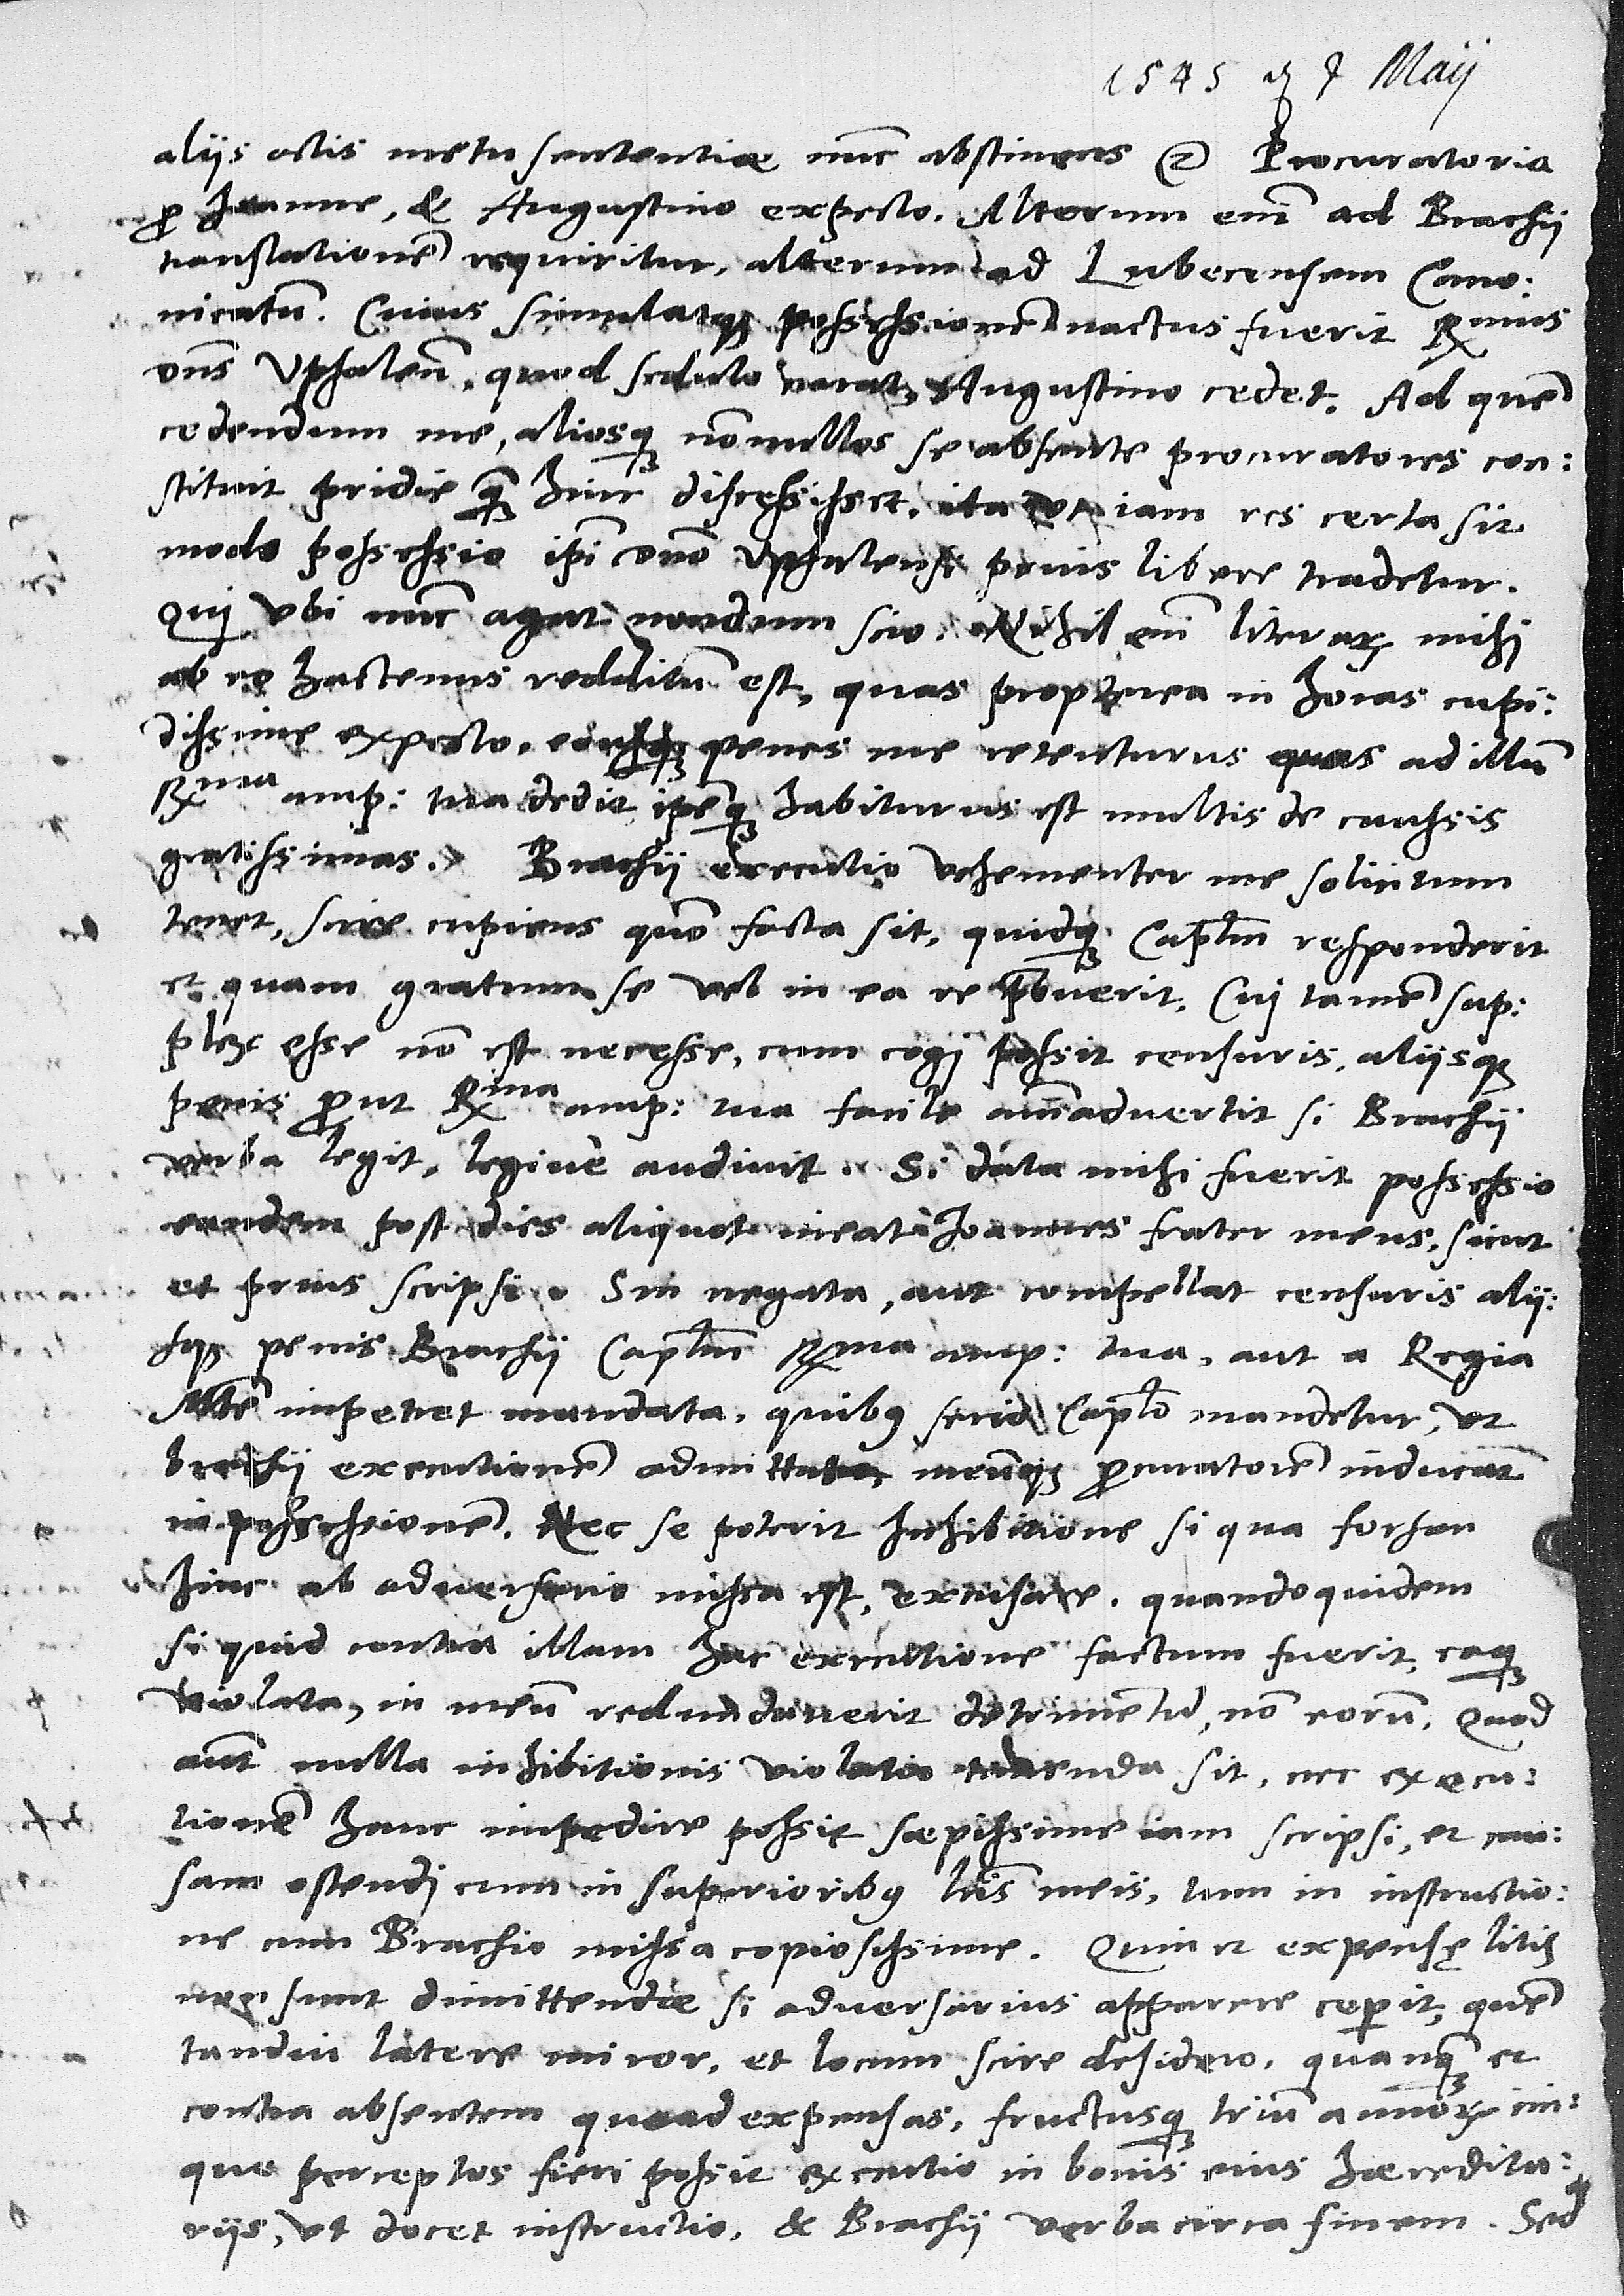 1545 7 Maij
alijs actis metu sententiae nunc abstinens Procuratoria
pro Joanne, & Augustino expecto. Alterum enim ad Brachij
translationem requiritur, alterum ad Lubecensem Cano:
nicatum. Cuius simulatque possessionem nactus fuerit Rmus
dns Upsalen, quod sedulo curat, Augustino cedet. Ad quem
cedendum me, aliosque nonnullos se absente procuratores con:
stituit pridie quam hinc discessisset, ita ut iam res certa sit
modo possessio ipi dno Upsalensi prius libere tradetur.
Qui ubi nunc agat nondum scio. Nihil enim literarum mihi
ab eo hactenus redditum est, quas propterea in horas cupi:
dissime expecto, easque penes me retenturus quas ad illum
Rma amp: tua dedit ipeque habiturus est multis de caussis
gratissimas. Brachij executio vehementer me solicitum
tenet, scire cupiens quomodo facta sit, quidque Caplum responderit
et quam gratum se vel in ea re praebuerit. Cui tamen sup:
plex esse non est necesse, cum cogi possit censuris, alijsque
penis prout Rma amp: tua facile animadvertit si Brachij
verba legit, legive audivit. Si data mihi fuerit possessio
eandem post dies aliquot ineat Joannes frater meus, sicut
et prius scripsi. Sin negata, aut compellat censuris alij:
sque penis Brachij Caplum Rma amp: tua, aut a Regia
Mte impetret mandata, quibus serio Caplo mandetur, ut
brachij executionem admittat, meumque procuratorem inducat
in possessionem. Nec se poterit Inhibitione si qua forsan
hinc ab adversario missa est, excusare. quandoquidem
si quid contra illam hac executione factum fuerit, eaque
violata, in meum redundaverit detrimentum, non eorum. Quod
aut nulla inhibitionis violatio timenda sit, nec execu:
tionem hanc impedire possit saepissime iam scripsi, et cau:
sam ostendi cum in superioribus lris meis, tum in instructio:
ne cum Brachio missa copiosissime. Quin et expensę litis
non sunt dimittendae si adversarius apparere ceperit, quem
tandiu latere miror, et locum scire desidero. quanquam et
contra absentem quoad expensas, fructusque trium annorum ini:
que perceptos fieri possit executio in bonis eius haeredita:
rijs, ut docet instructio, & Brachij verba circa finem. Sed